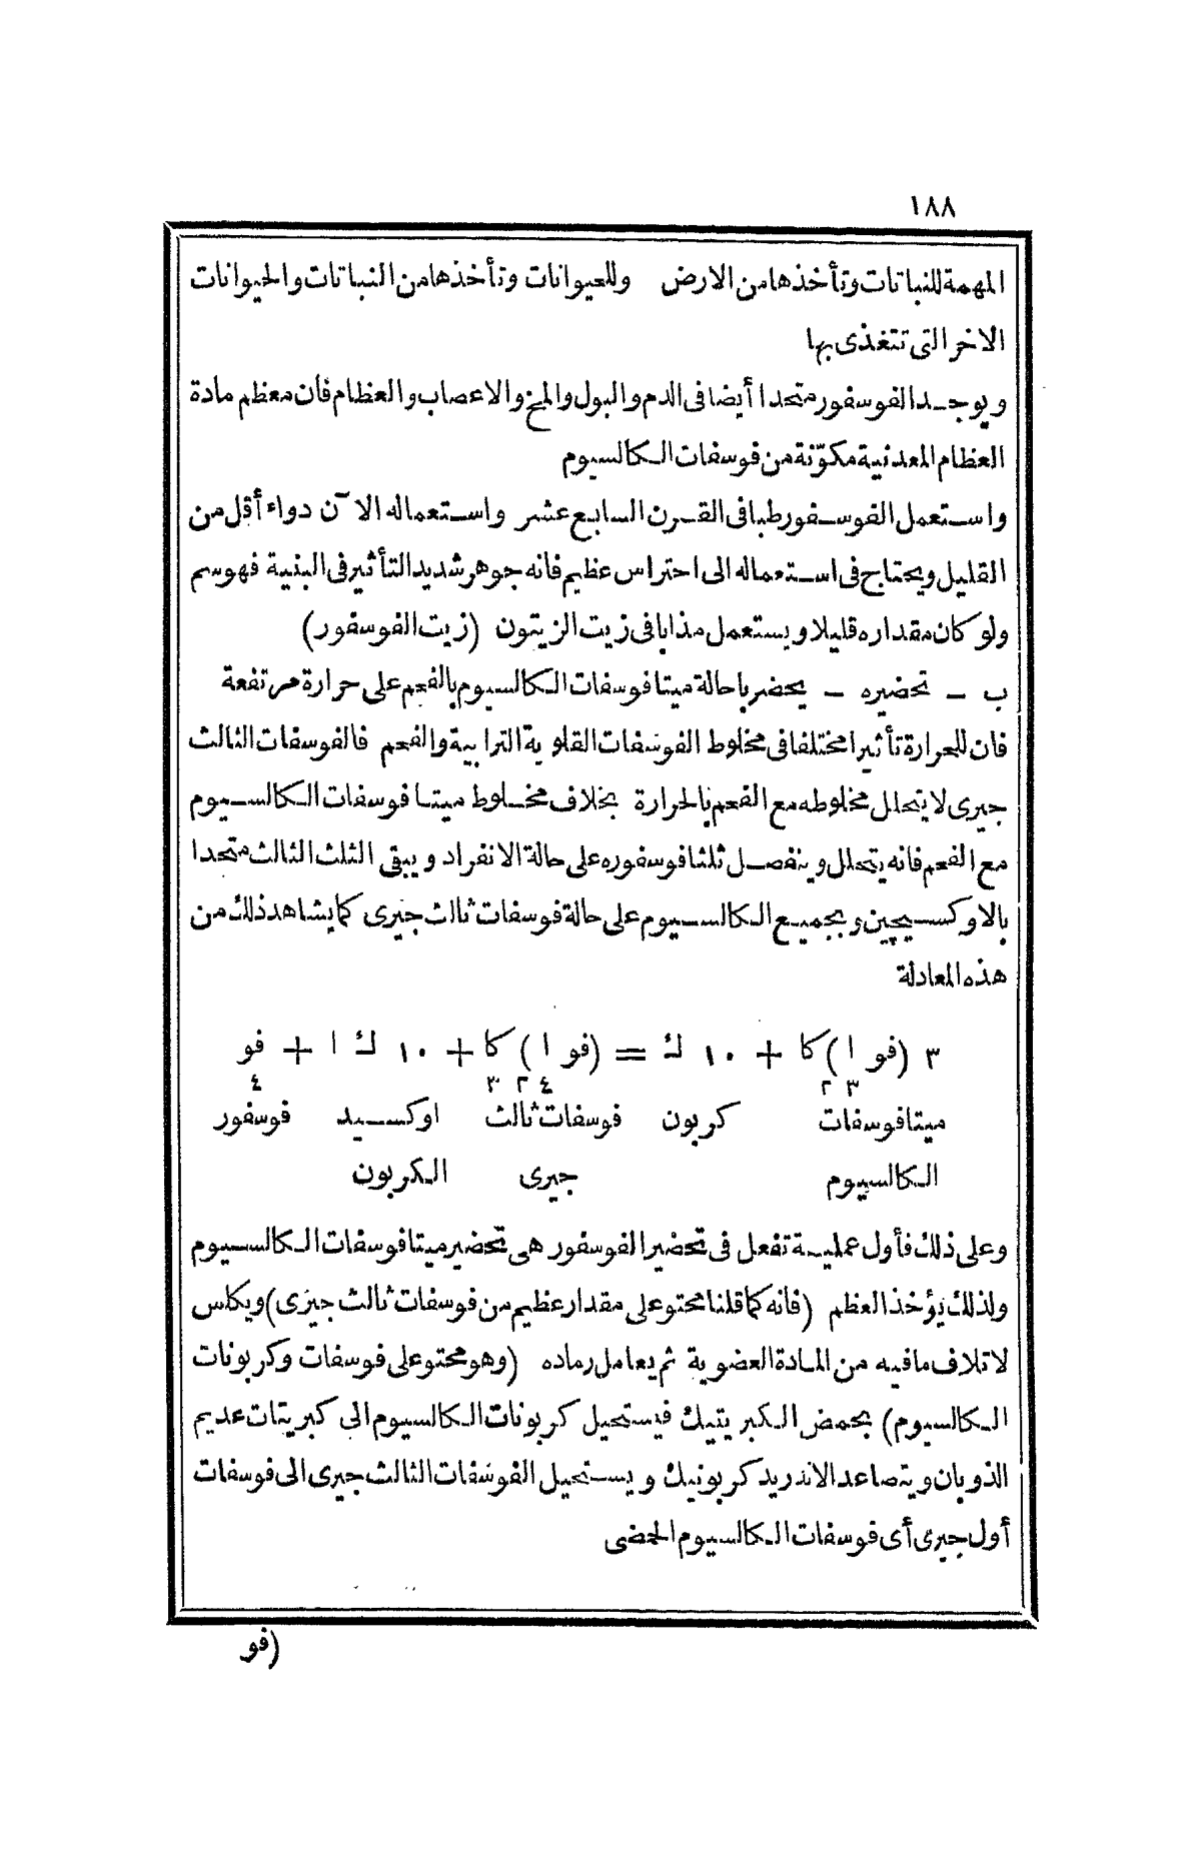 ١٨٨
المهمة للنباتات وتأخذها من الارض وللحيوانات وتأخذها من النباتات والحيوانات
الاخر التى تتغذى بها
ويوجد الفوسفور متحدا أيضا فى الدم والبول والمخ والاعصاب والعظام فأن معظم مادة
العظام المعدنية مكوّنة من فوسفات الكالسيوم
واستعمل الفوسفور طبا فى القرن السابع عشر واستعماله الآن دواء أقل من
القليل ويحتاج فى استعماله الى احتراس عظيم فانه جوهر شديد التأثير فى البنية فهو سم
ولو كان مقداره قليلا ويستعمل مذابا فى زيت الزيتون (زيت الفوسفور)
ب ـ تحضيره ـ يحضر باحالة ميتا فوسفات الكالسيوم بالفحم على حرارة مرتفعة
فان للحرارة تأثيرا مختلفا فى مخلوط الفوسفات القلوية الترابية والفحم فالفوسفات الثالث
جيرى لا يتحلل مخلوطه مع الفحم بالحرارة بخلاف مخلوط ميتا فوسفات الكالسيوم
مع الفحم فانه يتحلل وينفصل ثلثا فوسفوره على حالة الانفراد ويبقى الثلث الثالث متحدا
بالاوكسيجين وبجميع الكالسيوم على حالة فوسفات ثالث جيرى كما يشاهد ذلك من
هذه المعادلة
٣ (فو ا) كا + ١٠ ك = (فو ا) كا + ١٠ ك ا + فو
٣ ٢ ٤ ٢ ٣ ٤
ميتا فوسفات كربون فوسفات ثالث اوكسيد فوسفور
الكالسيوم جيرى الكربون
وعلى ذلك فأول عملية تفعل فى تحضير الفوسفور هى تحضير ميتا فوسفات الكالسيوم
ولذلك يؤخذ العظم (فانه كما قلنا محتو على مقدار عظيم من فوسفات ثالث جيرى) ويكلس
لاتلاف ما فيه من المادة العضوية ثم يعامل رماده (وهو محتو على فوسفات وكربونات
الكالسيوم) بحمض الكبريتيك فيستحيل كربونات الكالسيوم الى كبريتات عديم
الذوبان ويتصاعد الاندريد كربونيك ويستحيل الفوسفات الثالث جيرى الى فوسفات
أول جيرى أى فوسفات الكالسيوم الحمضى
(فو